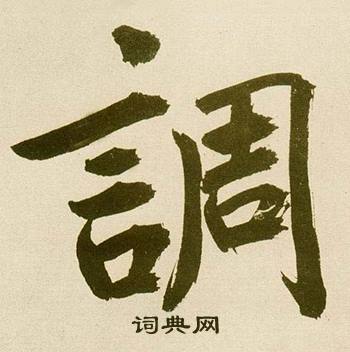 調
词典网